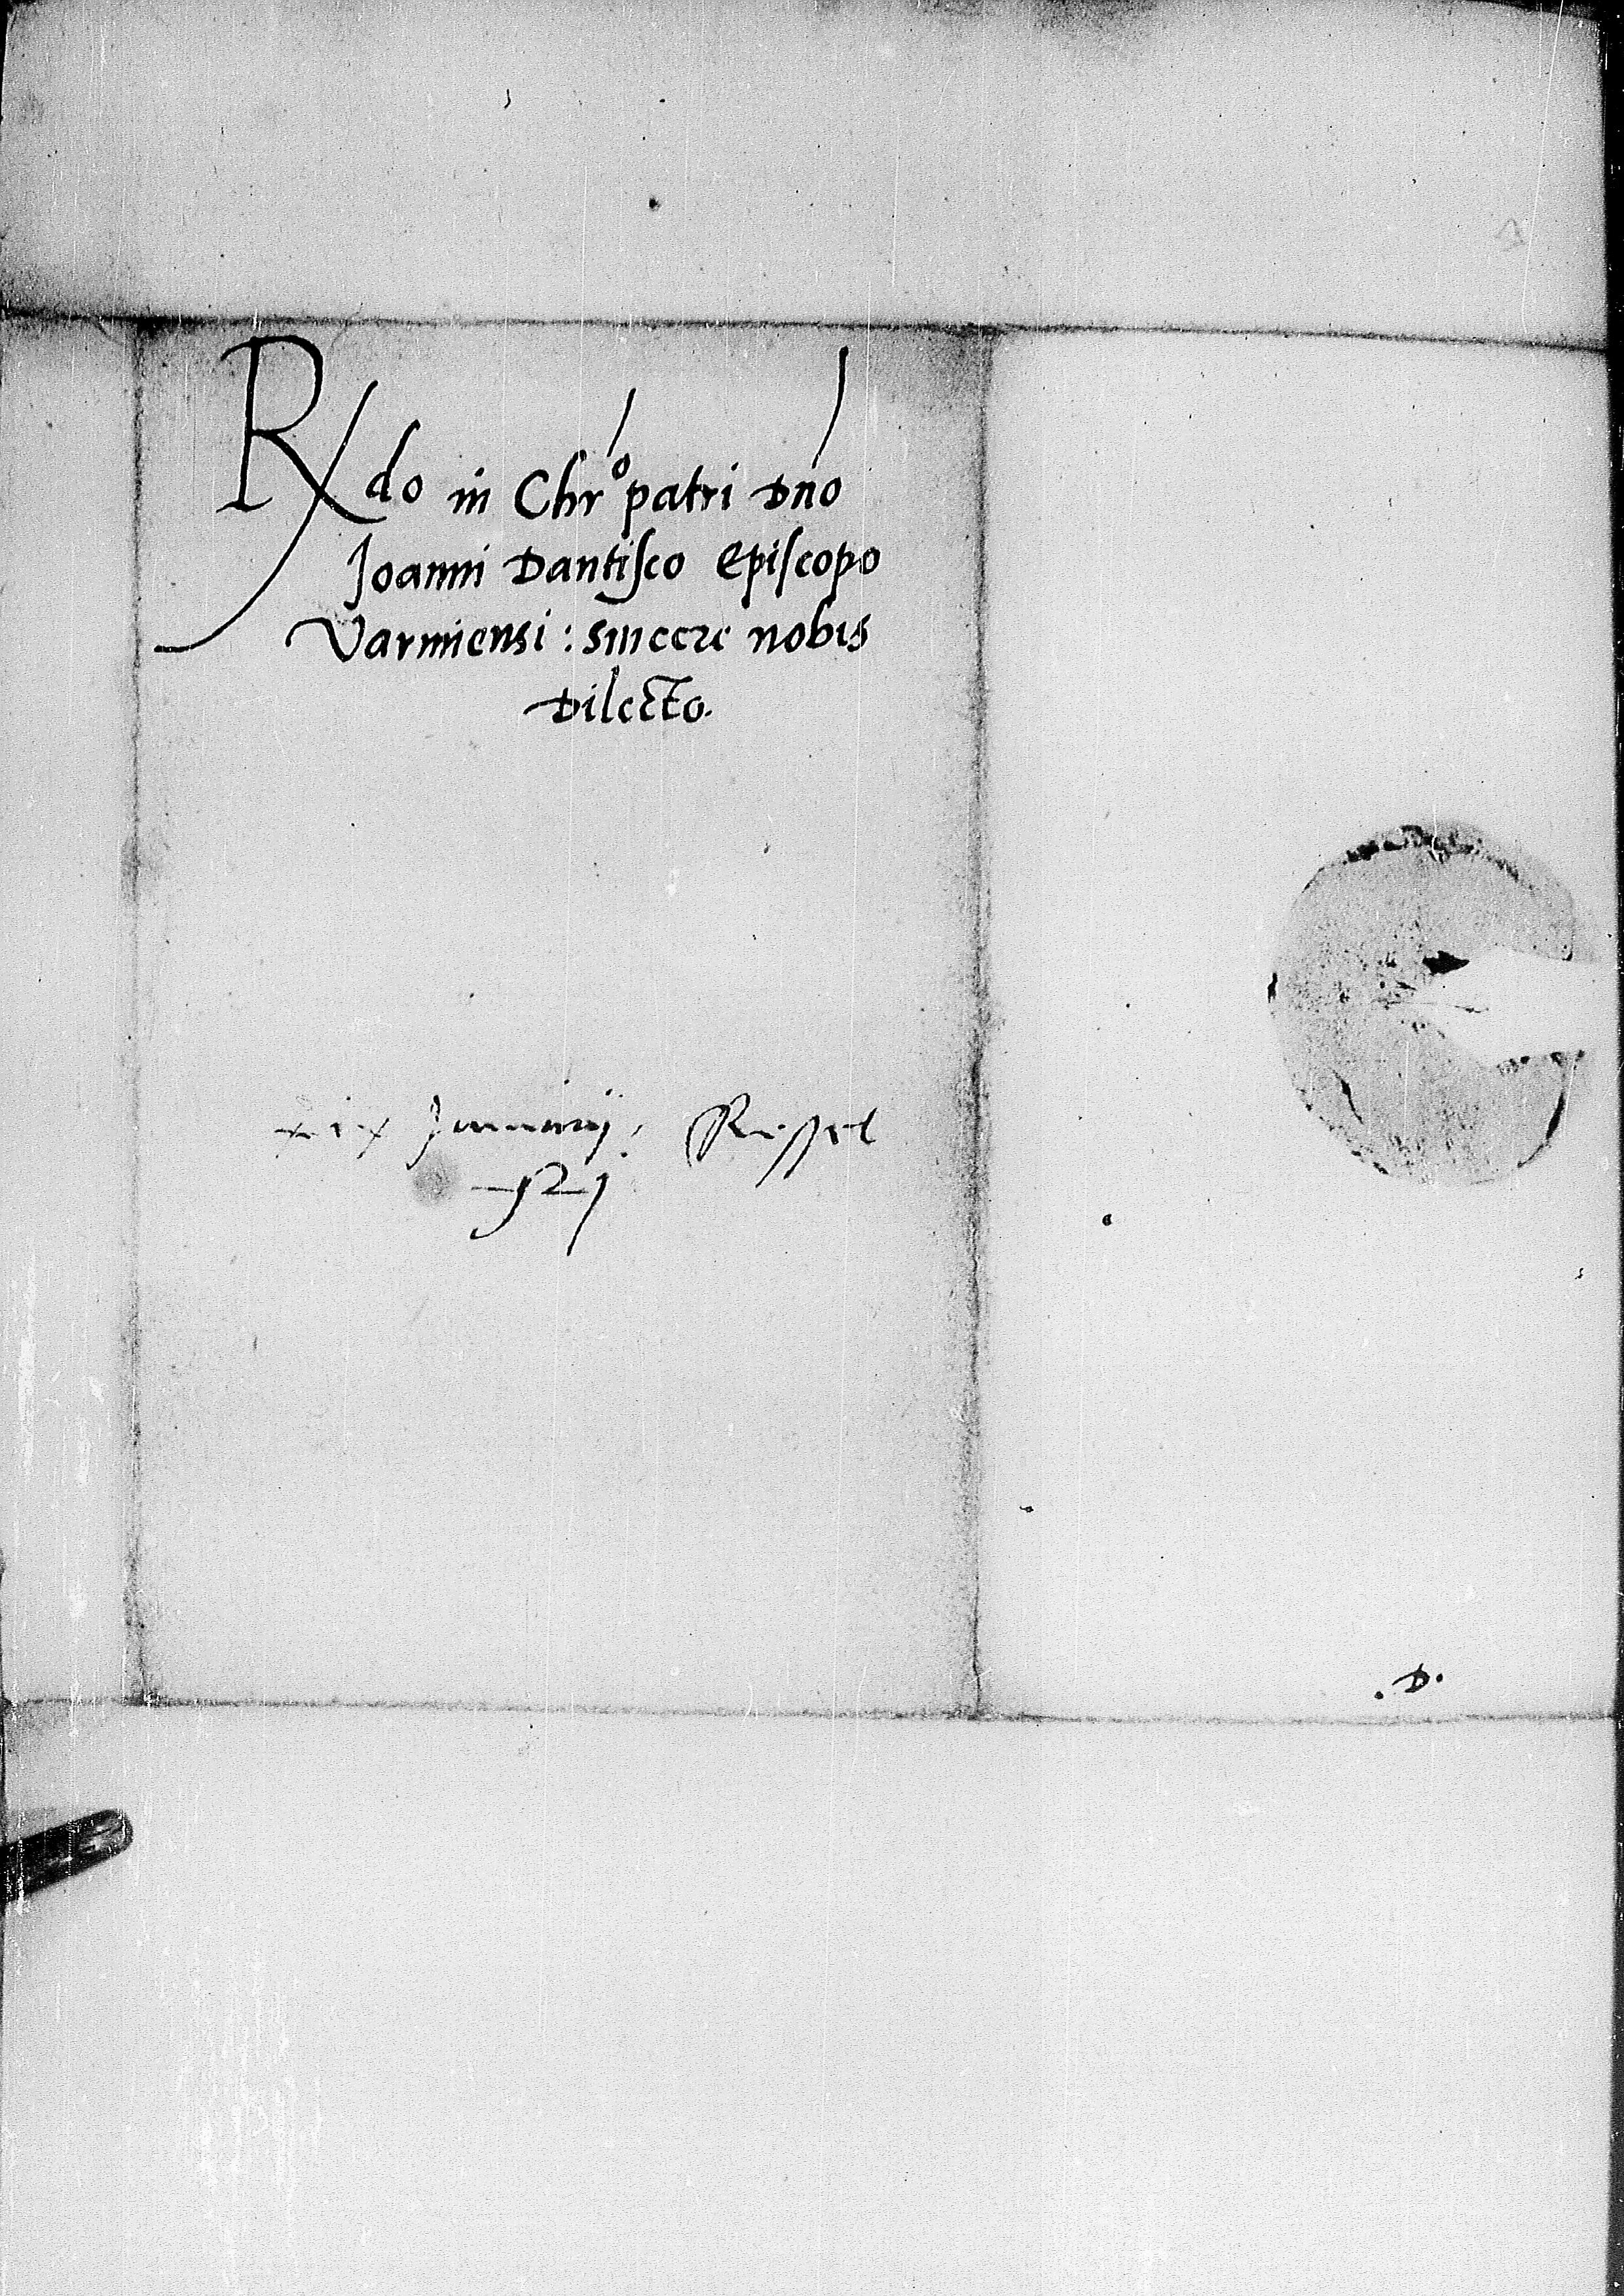 Rdo in Chro patri Dno
Joanni Dantisco Episcopo
Varmiensi : sincere nobis
Dilecto.
xix Januarij, Ressel
.D.